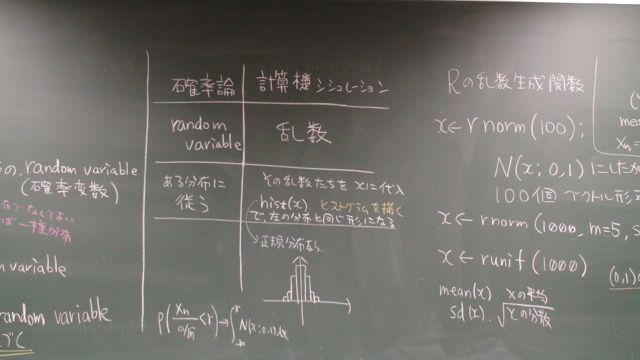 random variable
(確率変数)
random variable
確率論
計算機シミュレーション
random variable
乱数
ある分布に従う
その乱数たちを xに代入
hist(x) ヒストグラムを描く
で、左の分布と同じ形になる
正規分布なら、
Rの乱数生成関数
x←rnorm(100);
N(x;0,1)にしたが
100個 ベクトル形式
x←rnorm(1000, m=5, s
x←runif(1000)
mean(x) xの平均
sd(x). √xの分散
(0,1)
mea
Xn =